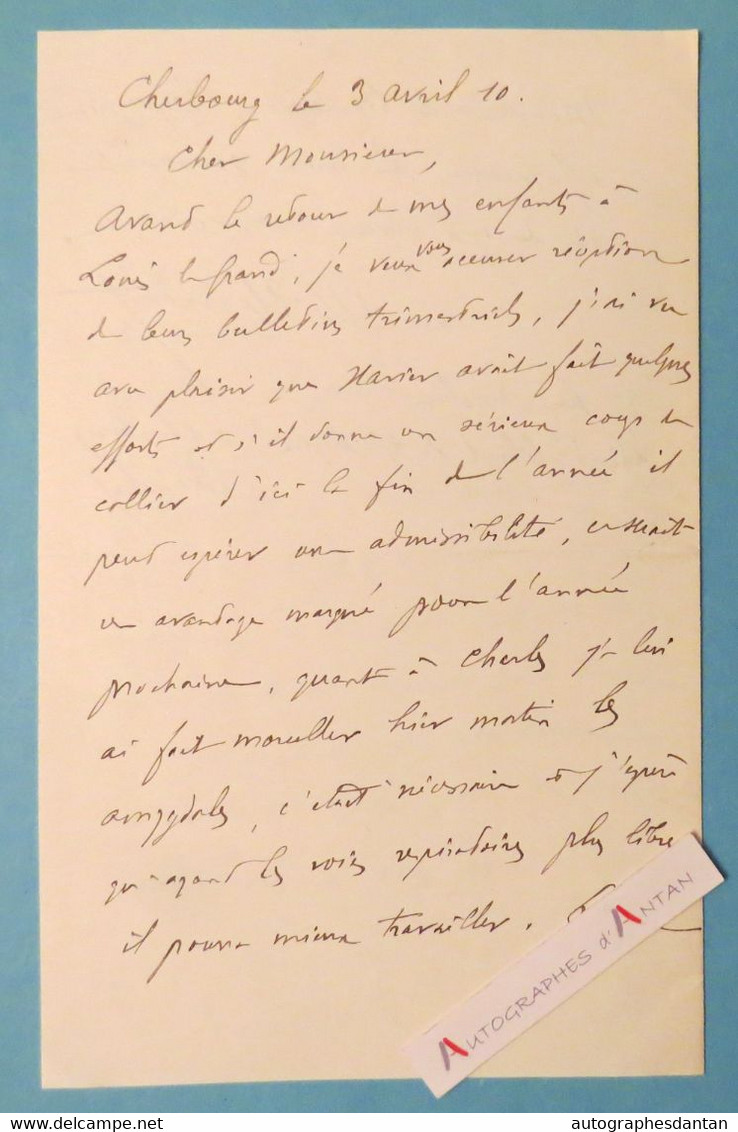 Cherbourg le 3 avril 10.
Cher Monsieur,
Avant le retour de mes enfants à
Louis le Grand, je veux vous accuser réception
de leurs bulletins trimestriels, j'ai vu
avec plaisir que Xavier avait fait quelques
efforts et s'il donne un sérieux coup de
collier d'ici la fin de l'année il
peut espérer une admissibilité, ce serait
un avantage marqué pour l'année
prochaine, quant à Charles je lui
ai fait morceller hier matin les
amygdales, c'était nécessaire et j'espère
qu'ayant les voies respiratoires plus libres
il pourra mieux travailler.
AUTOGRAPHES d'ANTAN
delcampe.net
autographesdantan